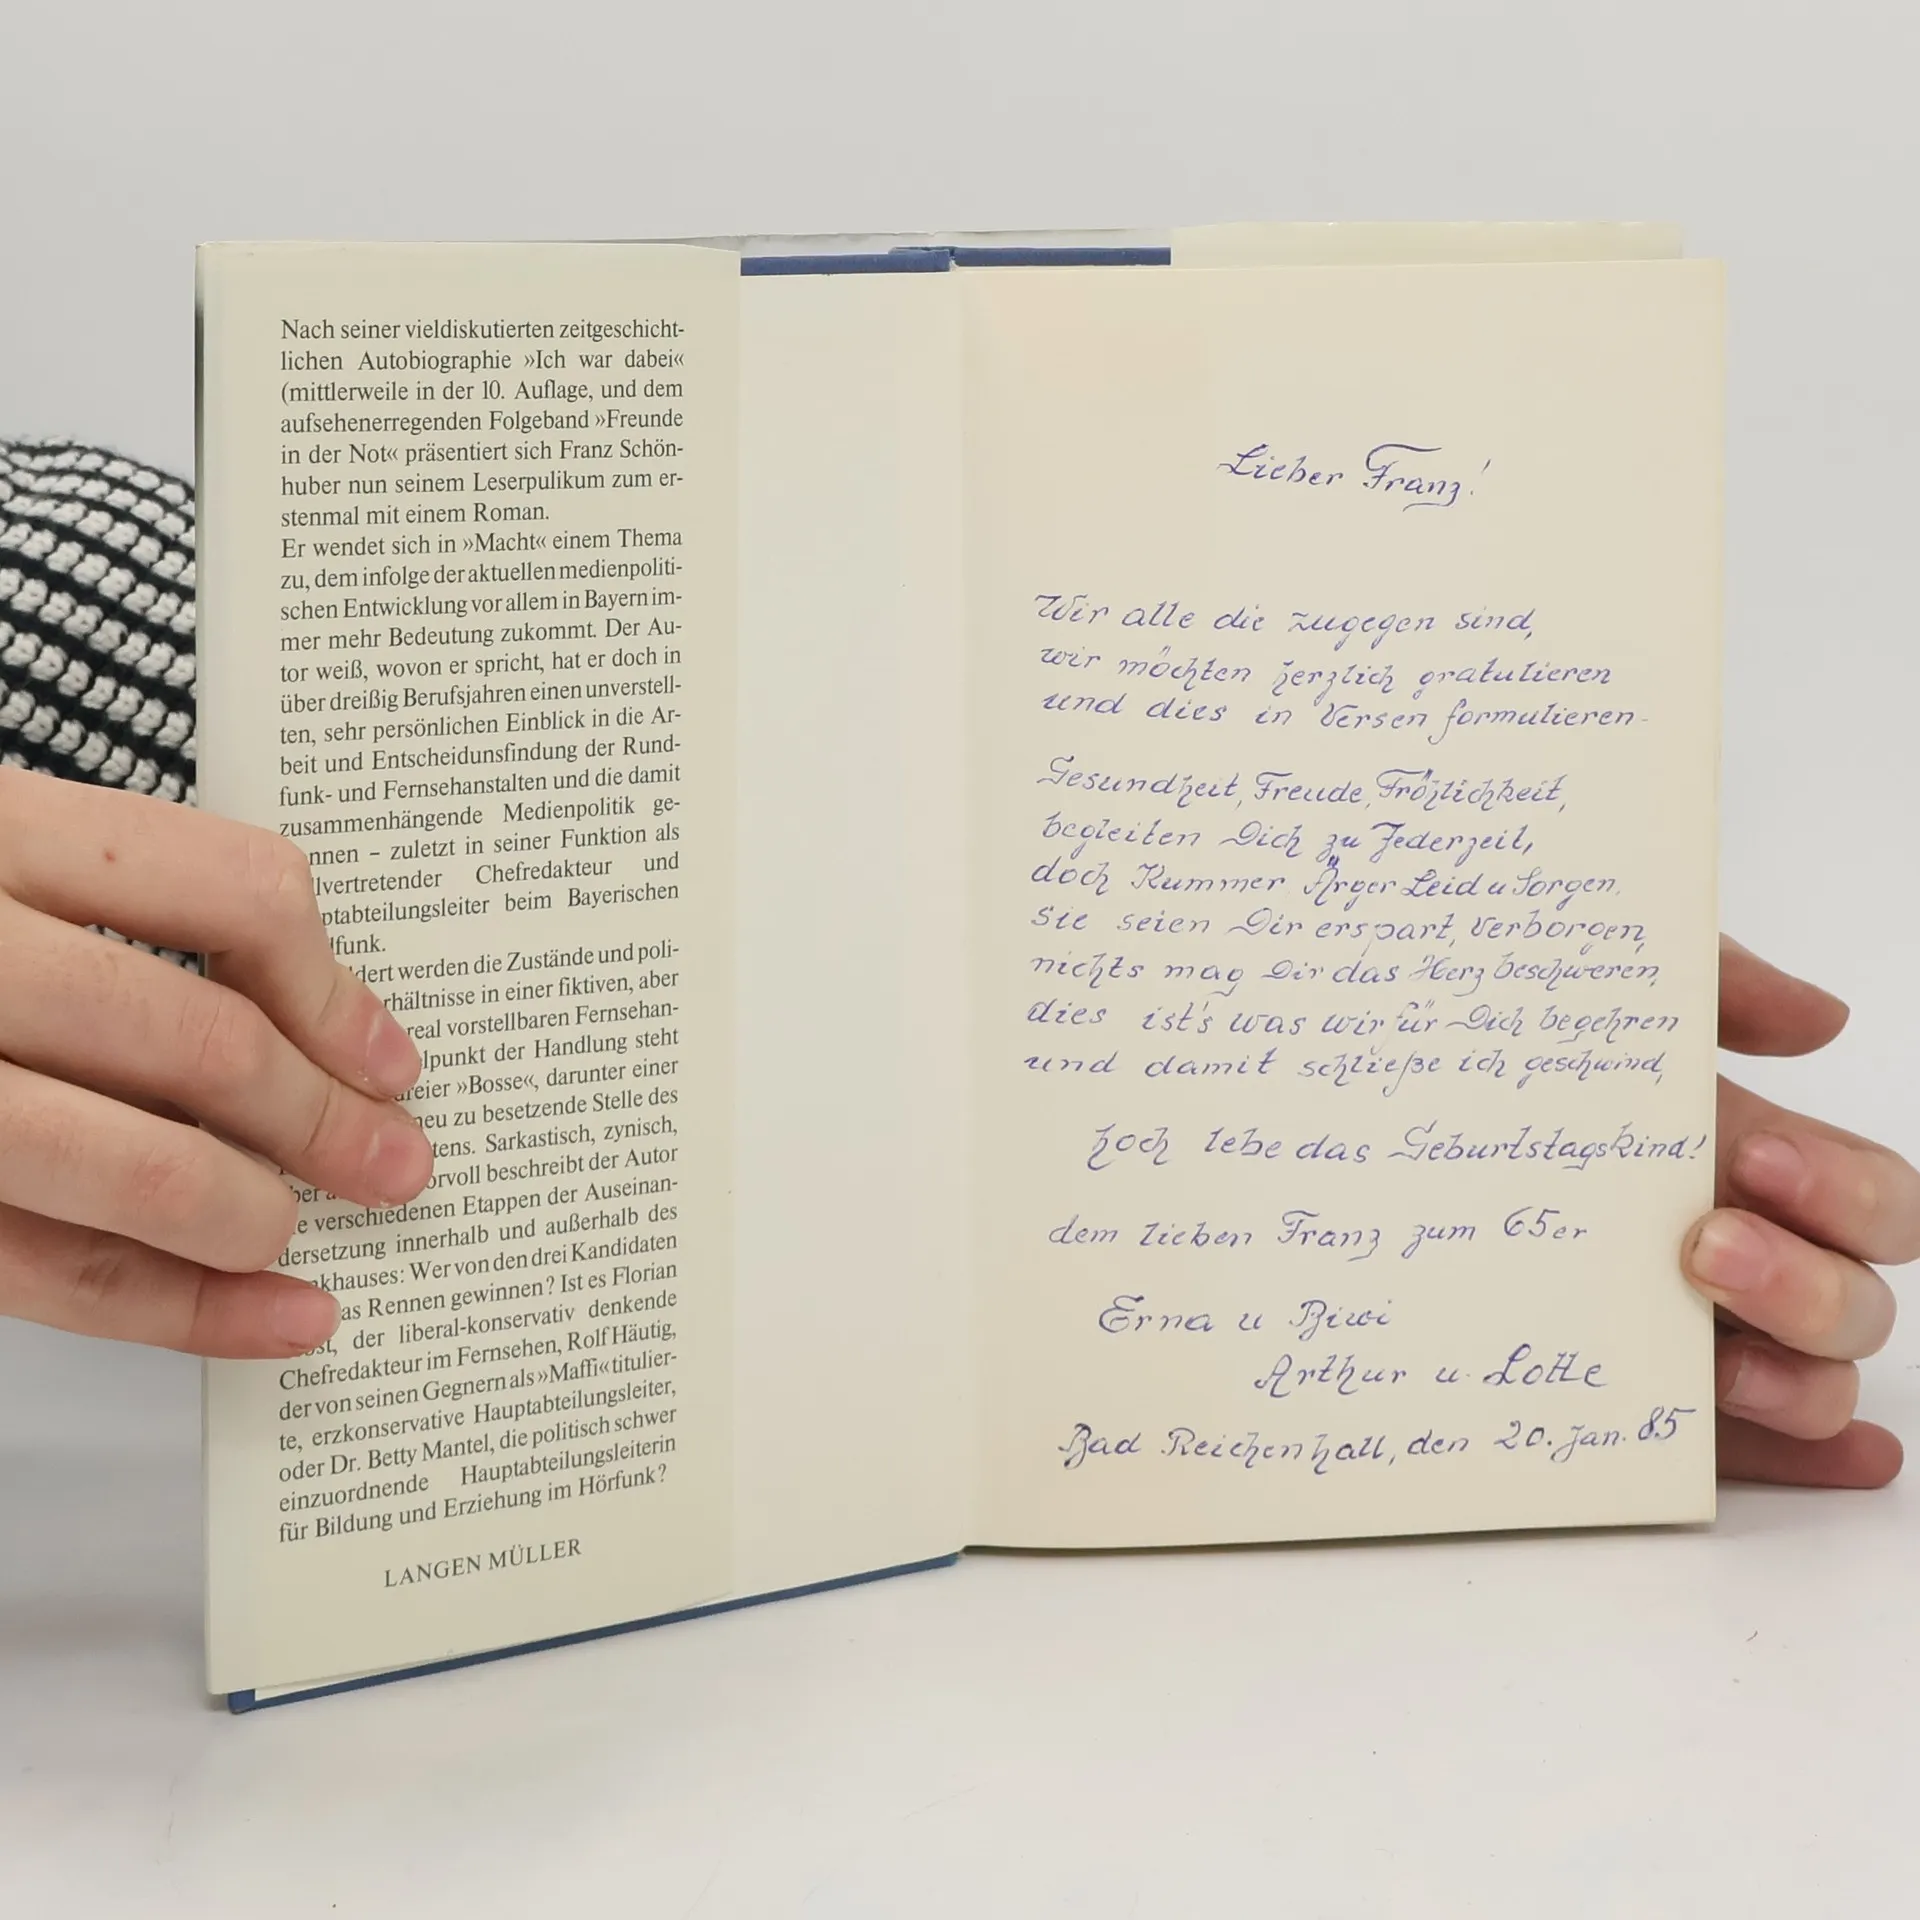 Nach seiner vieldiskutierten zeitgeschicht-
lichen Autobiographie »Ich war dabei«
(mittlerweile in der 10. Auflage, und dem
aufsehenerregenden Folgeband »Freunde
in der Not« präsentiert sich Franz Schön-
huber nun seinem Leserpulikum zum er-
stenmal mit einem Roman.
Er wendet sich in »Macht« einem Thema
zu, dem infolge der aktuellen medienpoliti-
schen Entwicklung vor allem in Bayern im-
mer mehr Bedeutung zukommt. Der Au-
tor weiß, wovon er spricht, hat er doch in
über dreißig Berufsjahren einen unverstell-
ten, sehr persönlichen Einblick in die Ar-
beit und Entscheidunsfindung der Rund-
funk- und Fernsehanstalten und die damit
zusammenhängende Medienpolitik ge-
nnen – zuletzt in seiner Funktion als
llvertretender Chefredakteur und
ptabteilungsleiter beim Bayerischen
lfunk.
ldert werden die Zustände und poli-
rhältnisse in einer fiktiven, aber
real vorstellbaren Fernsehan-
lpunkt der Handlung steht
dreier »Bosse«, darunter einer
neu zu besetzende Stelle des
tens. Sarkastisch, zynisch,
orvoll beschreibt der Autor
e verschiedenen Etappen der Auseinan-
dersetzung innerhalb und außerhalb des
nkhauses: Wer von den drei Kandidaten
as Rennen gewinnen? Ist es Florian
st, der liberal-konservativ denkende
Chefredakteur im Fernsehen, Rolf Häutig,
der von seinen Gegnern als »Maffi« titulier-
te, erzkonservative Hauptabteilungsleiter,
oder Dr. Betty Mantel, die politisch schwer
einzuordnende Hauptabteilungsleiterin
für Bildung und Erziehung im Hörfunk?
LANGEN MÜLLER
Lieber Franz!
Wir alle die zugegen sind,
wir möchten herzlich gratulieren
und dies in Versen formulieren-
Gesundheit, Freude, Fröhlichkeit,
begleiten Dich zu Jederzeit,
doch Kummer Ärger Leid u Sorgen,
sie seien Dir erspart, verborgen,
nichts mag Dir das Herz beschweren,
dies ist's was wir für Dich begehren
und damit schließe ich geschwind,
hoch lebe das Geburtstagskind!
dem lieben Franz zum 65er
Erna u Biwi
Arthur u. Lotte
Bad Reichenhall, den 20. Jan. 85